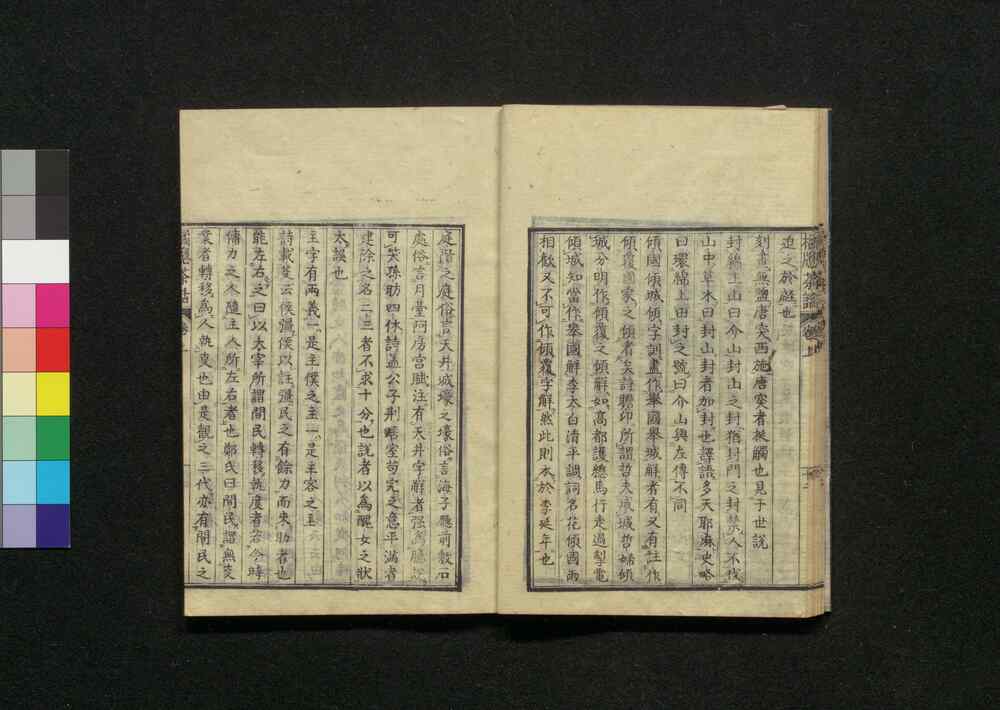 迫之於敵也
刻畫無鹽唐突西施唐突者抵觸也見于世說
封綿上山曰介山封山之封猶封門之封禁人不伐
山中草木曰封山封者加封也譯語多天耶麻史略
曰環綿上田封之號曰介山與左傳不同
傾國傾城傾字訓盡作舉國舉城解者有又有註作
傾覆國家之傾者矣詩瞻卬所謂哲夫成城哲婦傾
城分明作傾覆之傾解如高都護驄馬行走過掣電
傾城知當作舉國解李太白清平調詞名花傾國兩
相歡又不可作傾覆字解然此則本於李延年也
庭階之庭俗言天井城壕之壕俗言海子廳前數石
處俗言月臺阿房宮賦注有天井字解者强爲臆說
可笑孫昉四休詩孟公子荆居室苟完之意平滿者
建除之名二三者不求十分也說者以為醜女之狀
太誤也
主字有兩義一是主僕之主一是主客之主
詩載芟云侯彊侯以註彊民之有餘力而來助者也
能左右之曰以太宰所謂閒民轉移執度者若今時
傭力之人隨主人所左右者也鄭氏曰閒民謂無
業者轉移為人執也由是觀之三代亦有閒民之